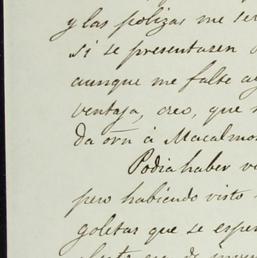 y las polizas me ser
si se presentasen
aunque me falte
ventaja, creo, que
da orn á Macalmo
Podia haber v
pero habiendo visto
goletas que se esper